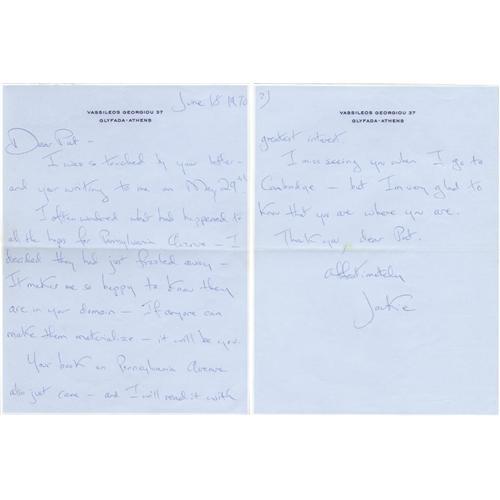 VASSILEOS GEORGIOU 37
GLYFADA-ATHENS
June 18 1970
Dear Pat -
I was so touched by your letter -
and your writing to me on May 29th
I often wondered what had happened to
all the hopes for Pennsylvania Avenue - I
decided they had just frosted away -
It makes me so happy to know they
are in your domain - If anyone can
make them materialize - it will be you.
Your book on Pennsylvania Avenue
also just came - and I will read it with
2)
VASSILEOS GEORGIOU 37
GLYFADA-ATHENS
greatest interest.
I miss seeing you when I go to
Cambridge - but I'm very glad to
know that you are where you are.
Thank you, dear Pat.
Affectionately
Jackie